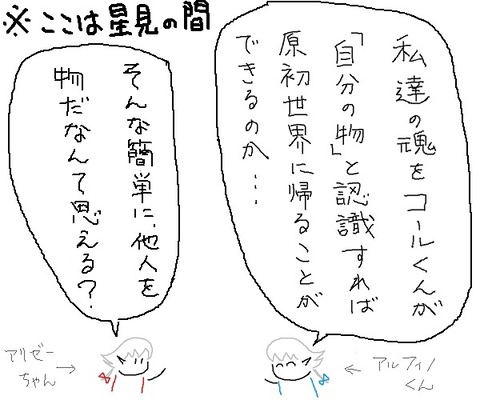 ※ここは星見の間
私達の魂をコールくんが
「自分の物」と認識すれば
原初世界に帰ることが
できるのか…
そんな簡単に、他人を
物だなんて思える？
アルフィノ
くん
アリゼー
ちゃん